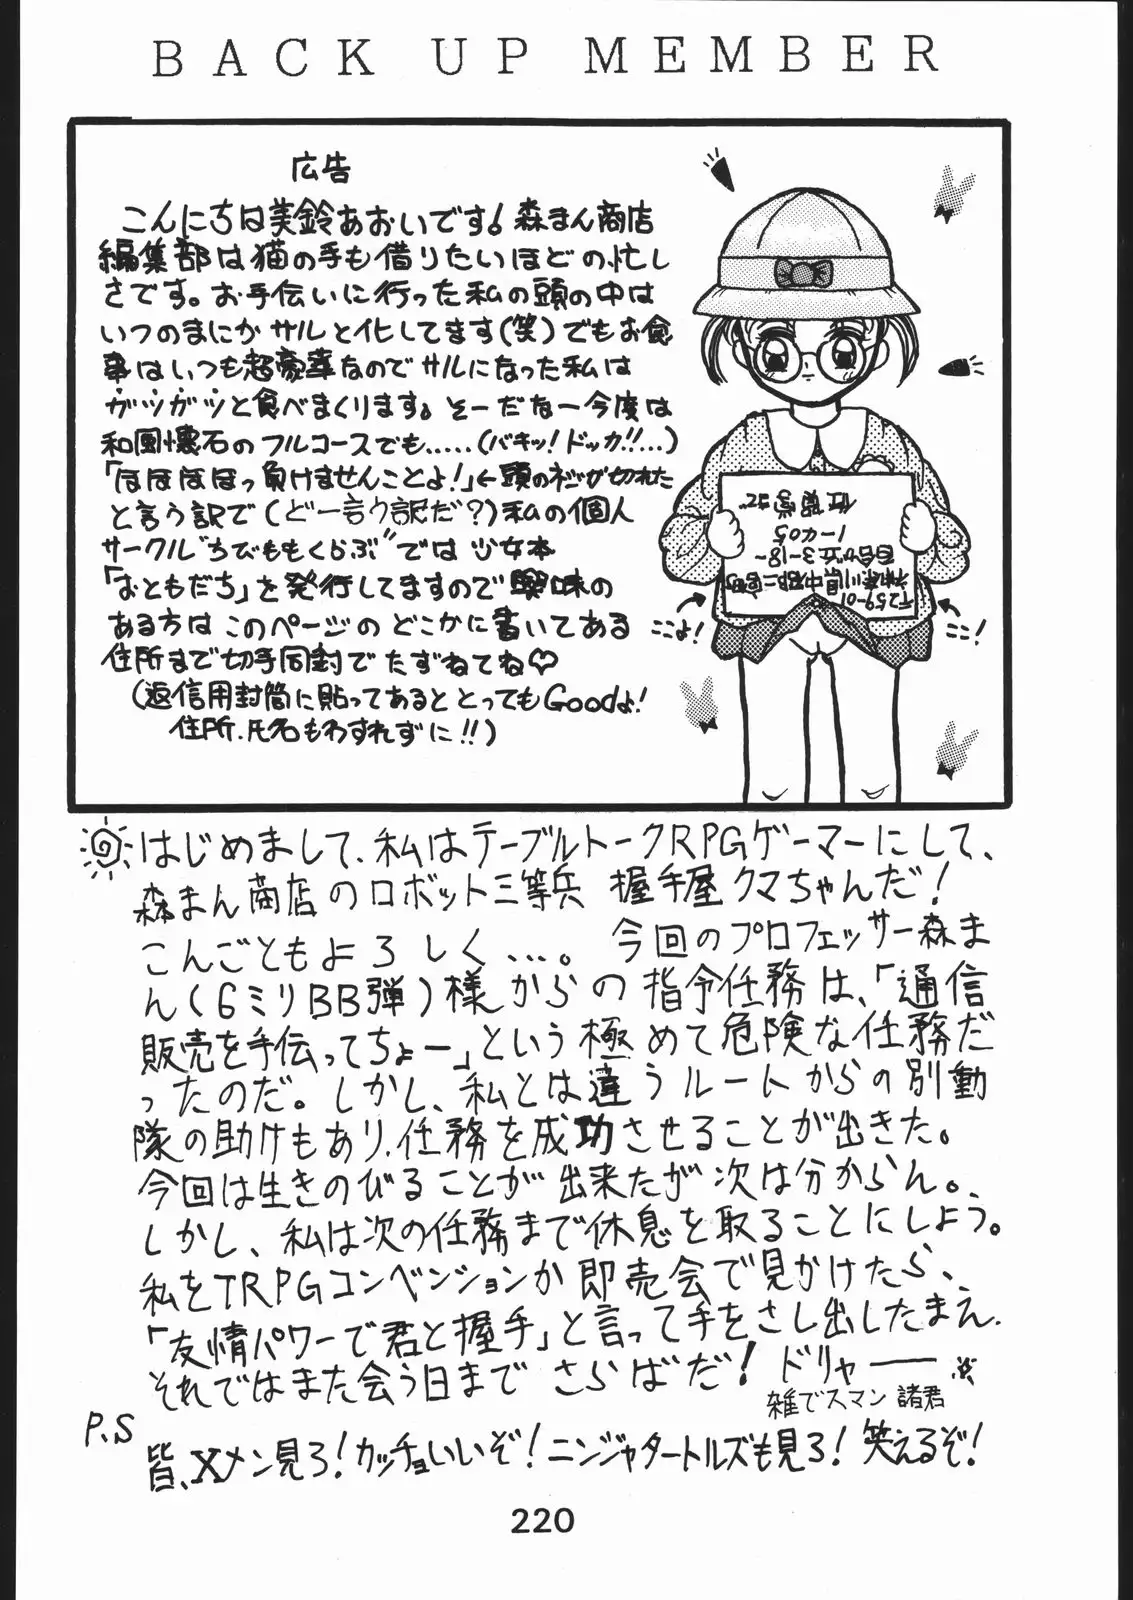 BACK UP MEMBER
広告
こんにちは美鈴あおいです！森まん商店
編集部は猫の手も借りたいほどの忙し
さです。お手伝いに行った私の頭の中は
いつのまにかサルと化してます(笑)でもお食
事はいつも超豪華なのでサルになった私は
ガツガツと食べまくります。そーだなー今度は
和風懐石のフルコースでも……(バキッ！ドッカ!!…)
「ほほほほっ負けませんことよ！」←頭のネジが切れた
と言う訳で(どー言う訳だ？)私の個人
サークル“ちびももくらぶ”では少女本
「おともだち」を発行してますので興味の
ある方はこのページのどこかに書いてある
住所まで切手同封でたずねてね♡
(返信用封筒に貼ってあるととってもGoodよ！
住所.氏名もわすれずに!!)
ここよ！
ここ！
はじめまして、私はテーブルトークRPGゲーマーにして、
森まん商店のロボット三等兵 握手屋クマちゃんだ！
こんごともよろしく…。 今回のプロフェッサー森ま
ん(6ミリBB弾)様からの指令任務は、「通信
販売を手伝ってちょー」という極めて危険な任務だ
ったのだ。しかし、私とは違うルートからの別動
隊の助けもあり、任務を成功させることが出きた。
今回は生きのびることが出来たが次は分からん。
しかし、私は次の任務まで休息を取ることにしよう。
私をTRPGコンベンションか即売会で見かけたら、
「友情パワーで君と握手」と言って手をさし出したまえ.
それではまた会う日まで さらばだ！ドリャー──
雑でスマン 諸君
P.S
皆、Xメン見ろ！カッチョいいぞ！ニンジャタートルズも見ろ！笑えるぞ！
220